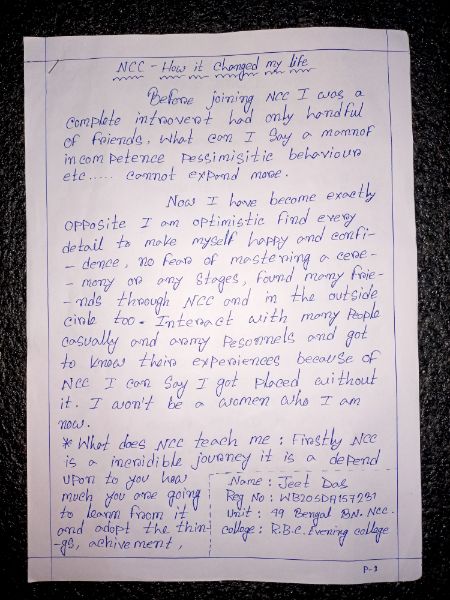 NCC - How it changed my life
Before joining NCC I was a
complete introvert had only handful
of friends. What can I Say a mannof
incompetence Pessimisitic behaviour
etc..... cannot expand more.
Now I have become exactly
opposite I am optimistic find every
detail to make myself happy and confi-
- dence, no fear of mastering a cere-
- mony or any Stages, found many frie-
- nds through NCC and in the outside
circle too. Interact with many People
casually and army Pesonnels and got
to know their experiences because of
NCC I can Say I got Placed, without
it. I won't be a women who I am
now.
* What does NCC teach me : Firstly NCC
is a incridible journey it is a depend
upon to you how
much you are going
to learn from it
and adopt the thin-
-gs, achivement,
Name : Jeet Das
Reg No : WB20SDA157231
Unit : 49 Bengal BN. NCC.
college : R.B.C. Evening college
P-1